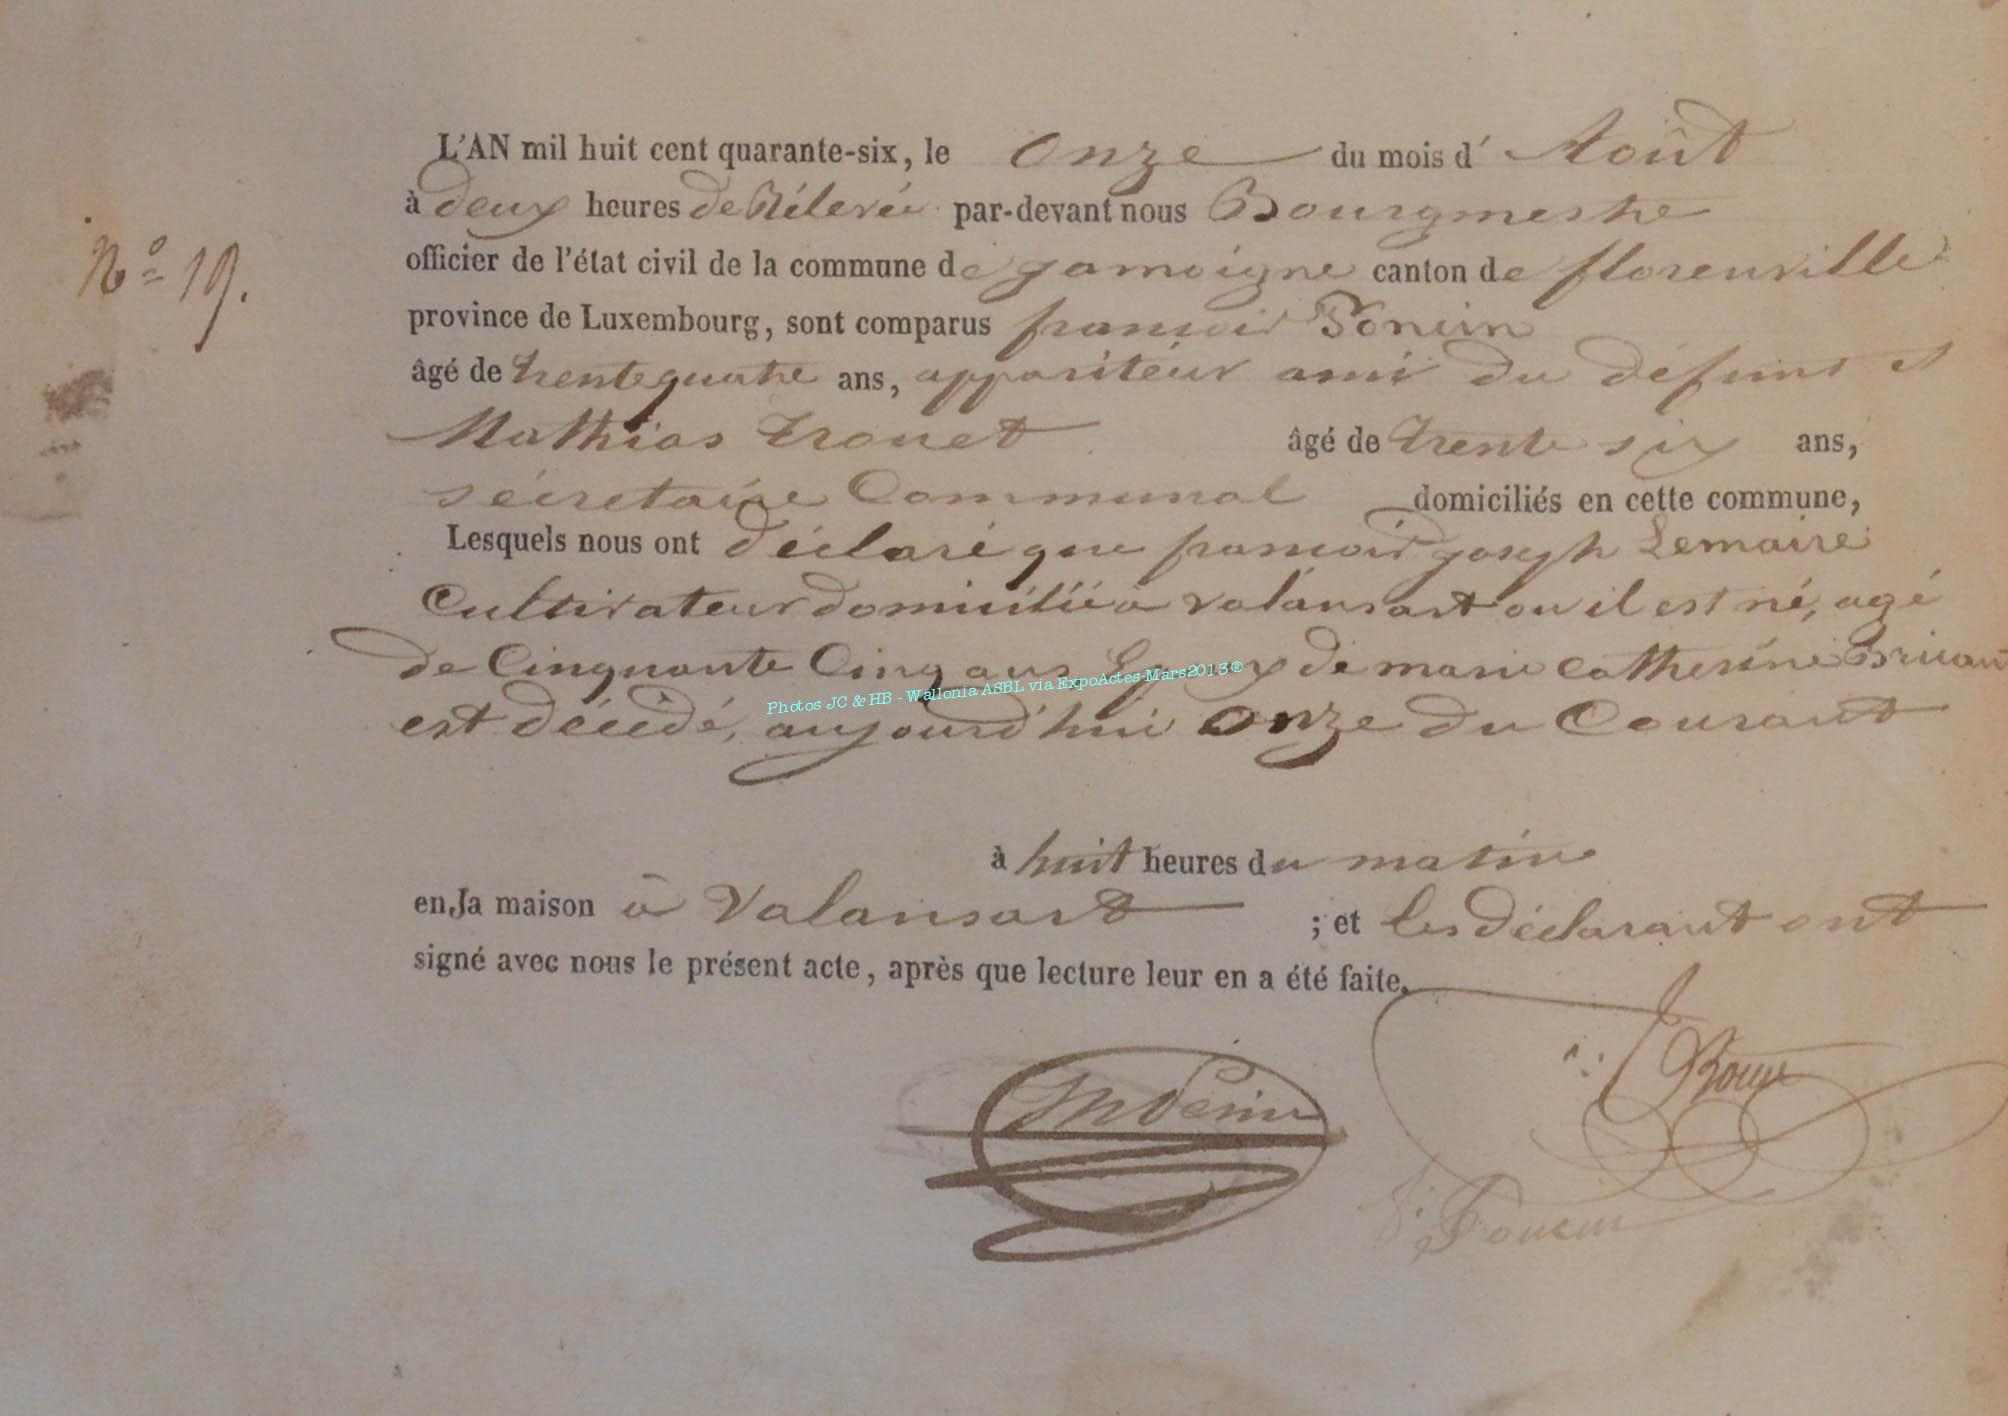 L'AN mil huit cent quarante-six, le onze du mois d' Août
à deux heures de Rélevée par-devant nous Bourgmestre
N° 19.
officier de l'état civil de la commune de jamoigne canton de florenville
province de Luxembourg, sont comparus francois Poncin
âgé de trente quatre ans, appariteur ami du défunt et
Mathias Trouet âgé de trente six ans,
sécretaire Communal domiciliés en cette commune,
Lesquels nous ont déclaré que francois joseph Lemaire
Cultivateur domicilié à valansart ou il est né, agé
de Cinquante Cinq ans Epoux de marie catherine
Photos JC & HB - Wallonia ASBL via ExpoActes-Mars2013®
est décédé, aujourd'hui onze du Courant
à huit heures du matin
en la maison à Valansart ; et les déclarant ont
signé avec nous le présent acte, après que lecture leur en a été faite.
Poncin